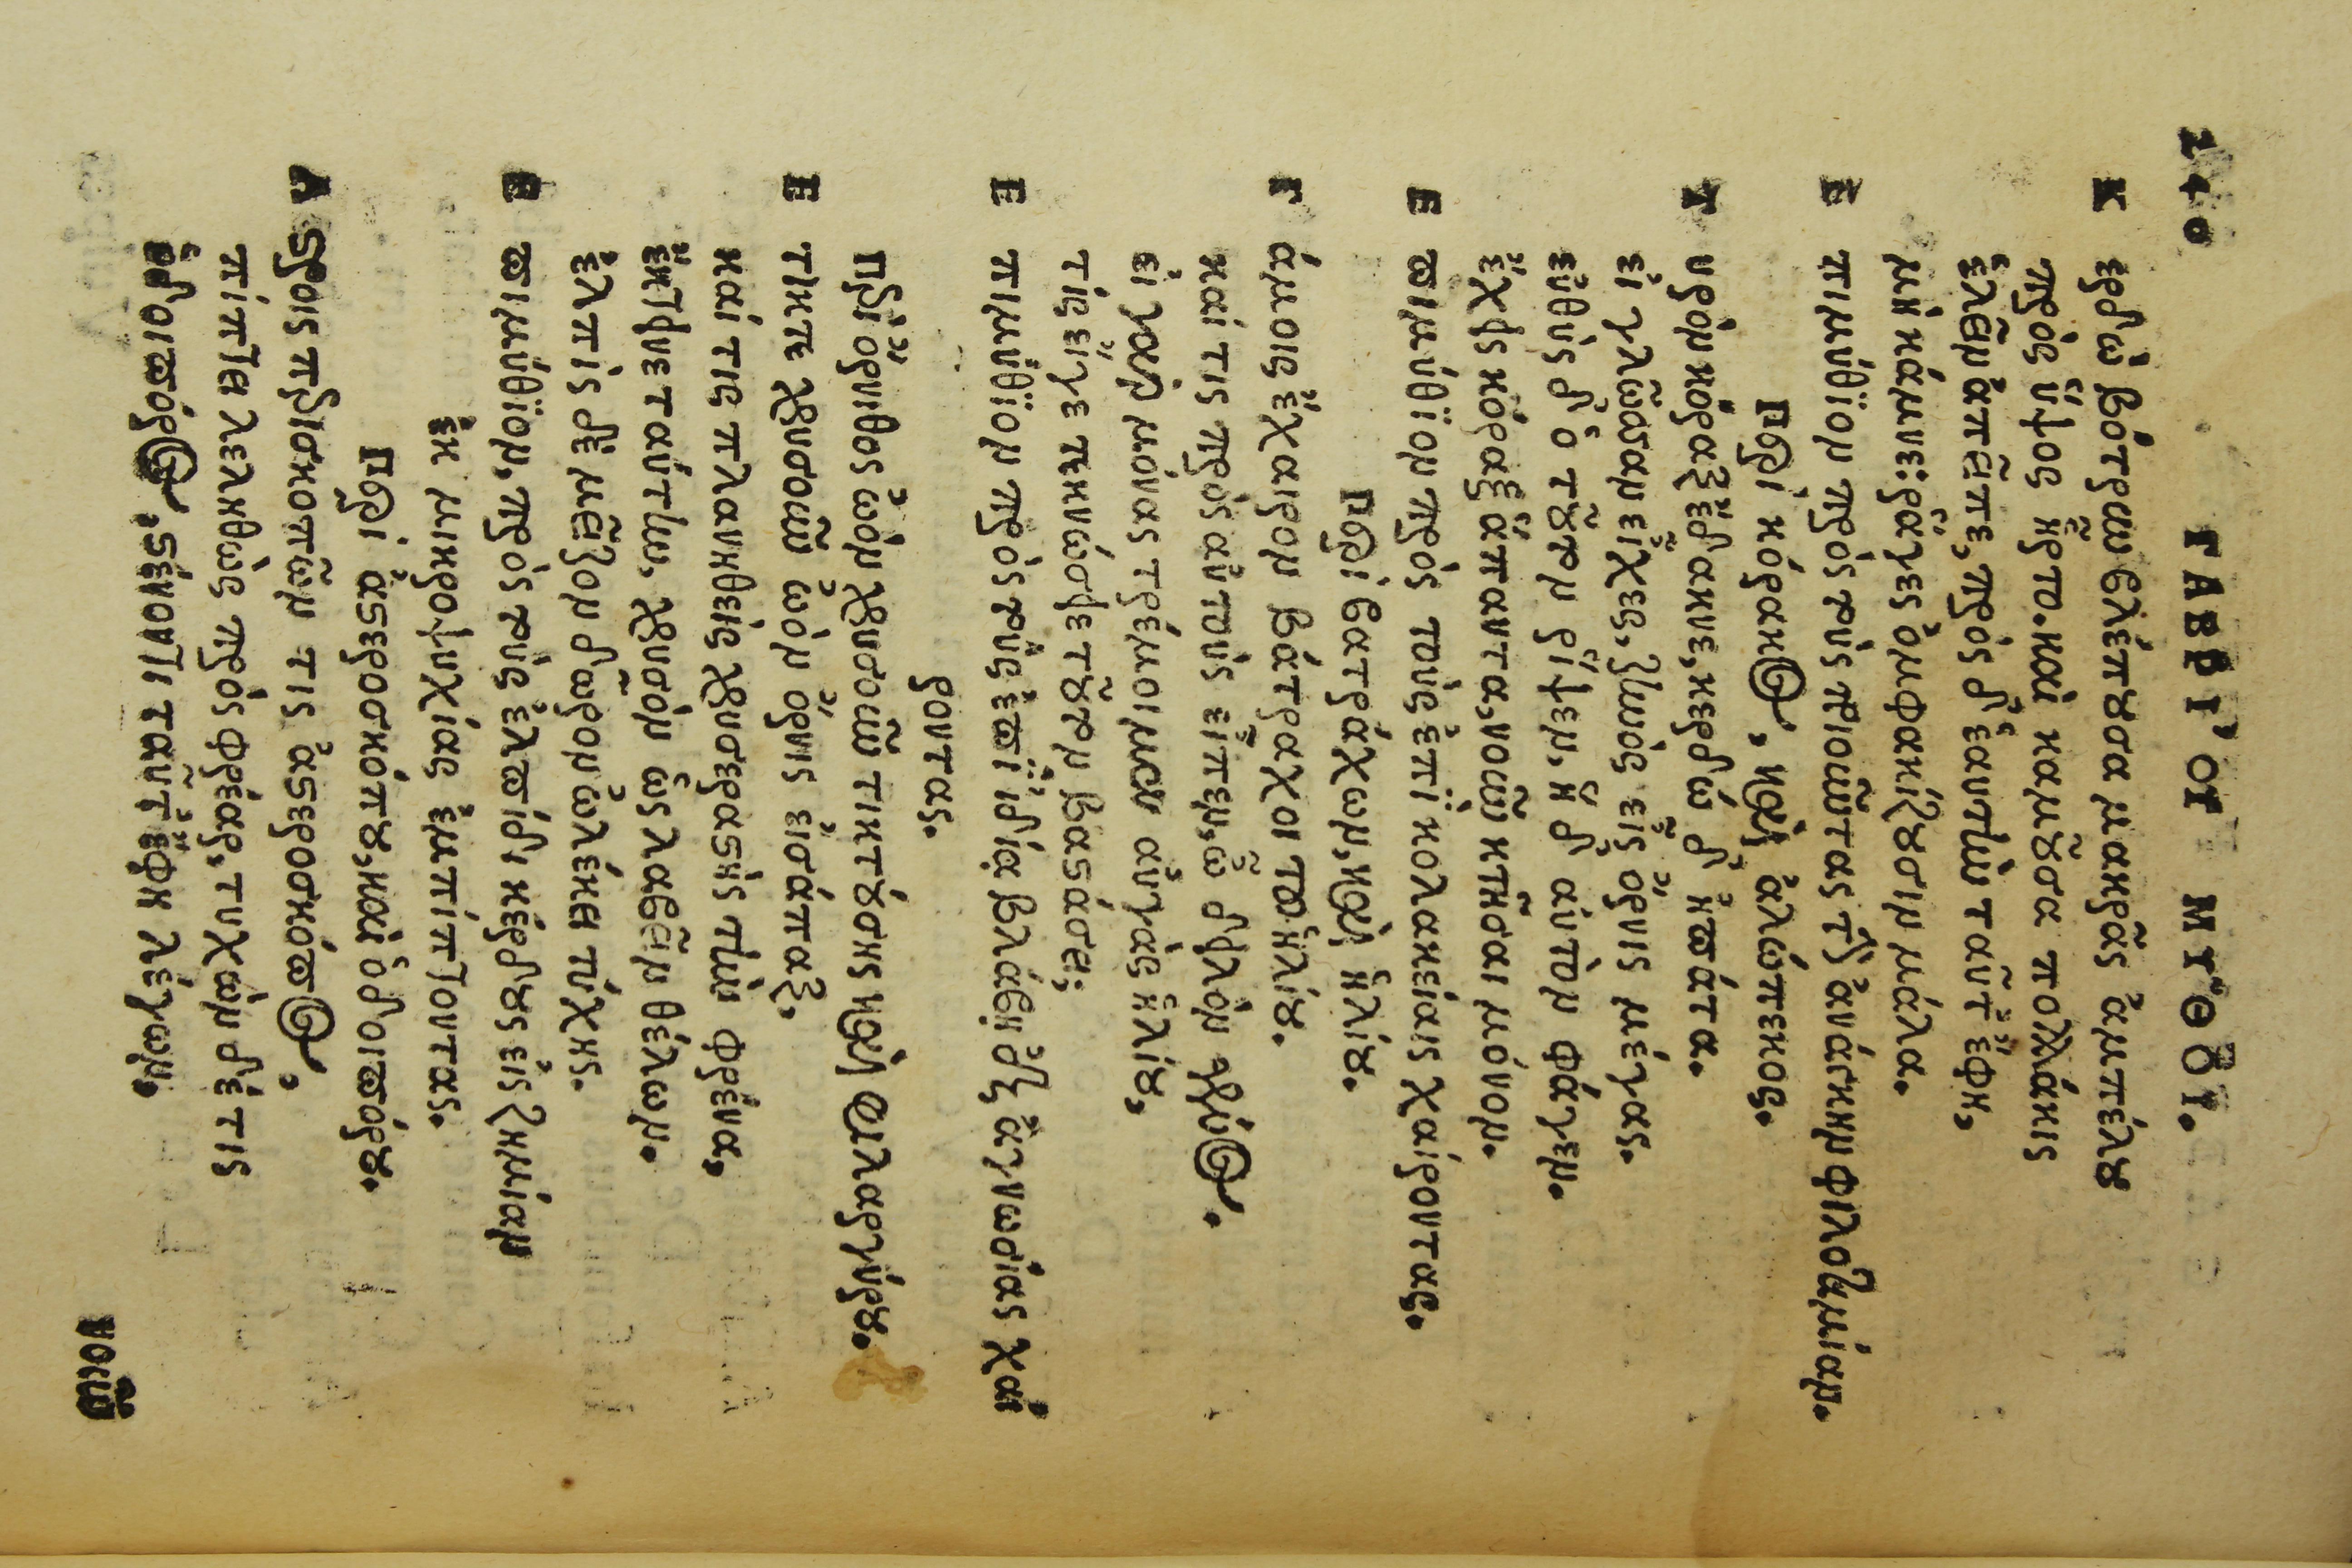 240 ΓΑΒΡΙ'ΟΥ ΜΥ͂ΘΟΙ.
Κερδὼ βότρυν βλέπουσα μακρᾶς ἀμπέλου
πρὸς ὕψος ἦρτο. καὶ καμοῦσα πολλάκις
ἑλεῖν ἀπεῖπε, πρὸς δ' ἑαυτὴν ταῦτ' ἔφη,
μὴ κάμνε: ῥᾶγες ὀμφακίζουσιν μάλα.
Ἐπιμύθιον πρὸς τοὺς ποιοῦντας τὴν ἀνάγκην φιλοτιμίαν.
Περὶ κόρακος, καὶ ἀλώπεκος.
Τυρὸν κόραξ ἔδακνε, κερδὼ δ' ἠπάτα.
εἰ γλῶσσαν εἶχες, ζηνὸς εἶς ὄρνις μέγας.
εὐθὺς δ' ὁ τοῦτον ῥίψεν, ἡ δ' αὐτὸν φάγεν.
ἔχεις κόραξ ἅπαντα, νοῦν κτῆσαι μόνον.
Ἐπιμύθιον πρὸς τοὺς ἐπὶ κολακείαις χαίροντας.
Περὶ βατράχων, καὶ ἡλίου.
Γάμοις ἔχαιρον βάτραχοι τοῖς ἡλίου.
καί τις πρὸς αὐτοὺς εἶπεν, ὦ δειλὸν γένος.
εἰ γὰρ μόνας τρέμοιμεν αὐγὰς ἡλίου,
τίς εἴγε τεκνώσειε τοῦτον βαστάσει;
Ἐπιμύθιον πρὸς τοὺς ἐπὶ ἰδίᾳ βλάβῃ δι' ἀγνωσίας χαί
ροντας.
Περὶ ὄρνιθος ὠὸν χρυσοῦν τικτούσης καὶ φιλαργύρου.
Ἔτικτε χρυσοῦν ὠὸν ὄρνις εἰσάπαξ,
καί τις πλανηθεὶς χρυσεραστὴς τὴν φρένα,
ἔκτεινε ταύτην, χρυσὸν ὡς λαβεῖν θέλων.
ἐλπὶς δὲ μεῖζον δῶρον ὠλέκει τύχης.
Ἐπιμύθιον, πρὸς τοὺς ἐλπίδι κέρδους εἰς ζημίαν
ἐκ μικροψυχίας ἐμπίπτοντας.
Περὶ ἀστεροσκόπου, καὶ ὁδοιπόρου.
Ἄστροις προσκοπῶν τις ἀστεροσκόπος,
πίπτει λεληθὼς πρὸς φρέαρ, τυχὼν δέ τις
ὁδοιπόρος, στένοντι ταῦτ' ἔφη λέγων.
νοῦν